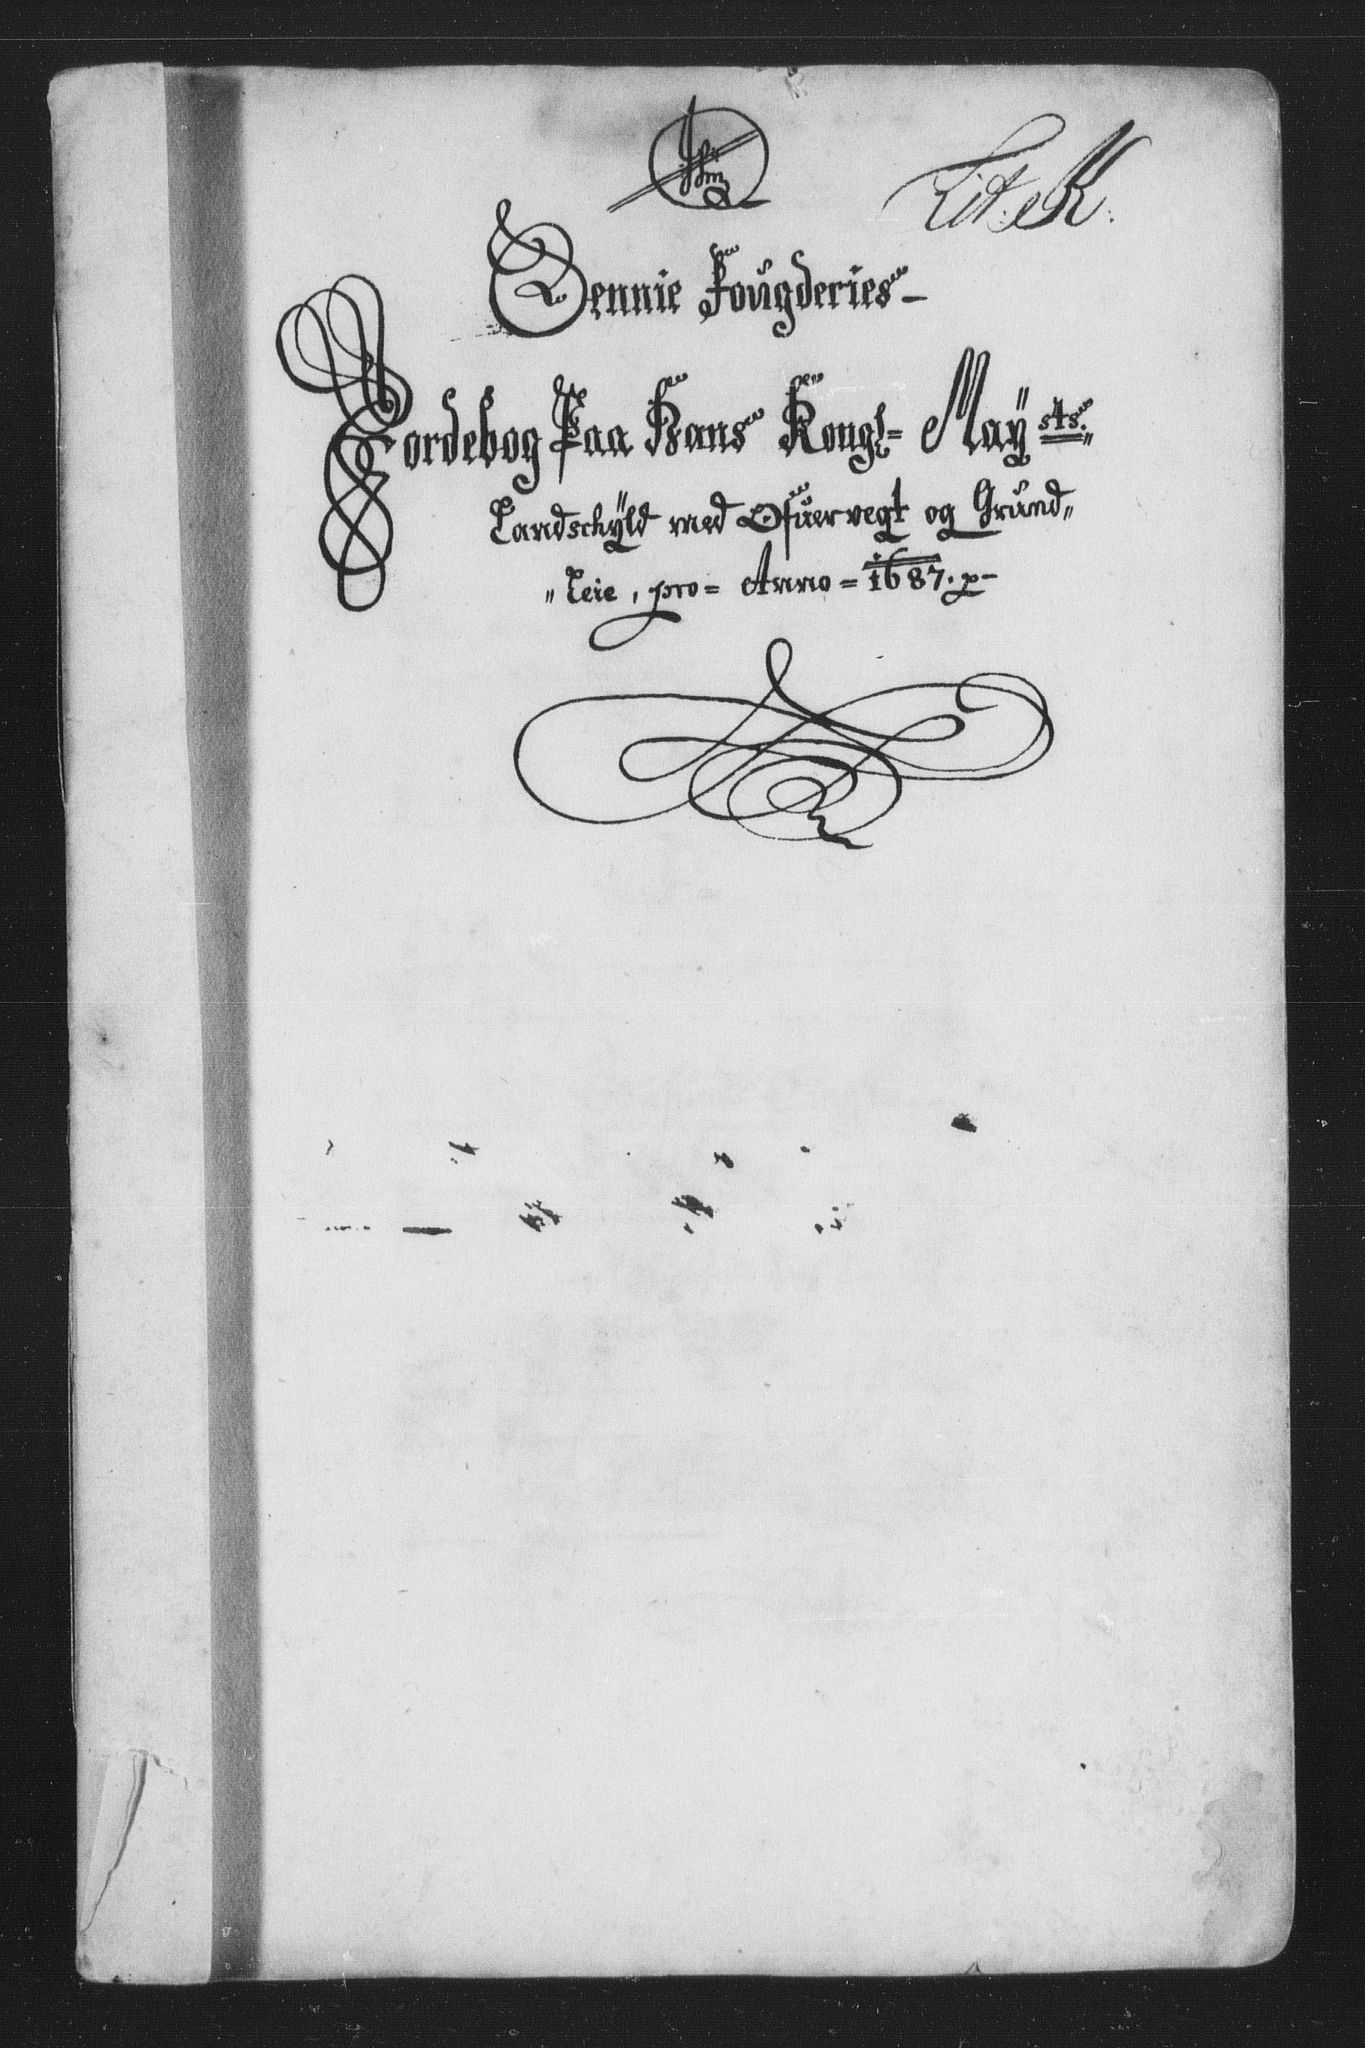 Lit: K:
Dennie Fougderies
Jordebog Paa Hans Kongl= Maÿsts:
Landschÿld med Ofuervegt og Grund„
„Leie, pro= Anno= 1687.